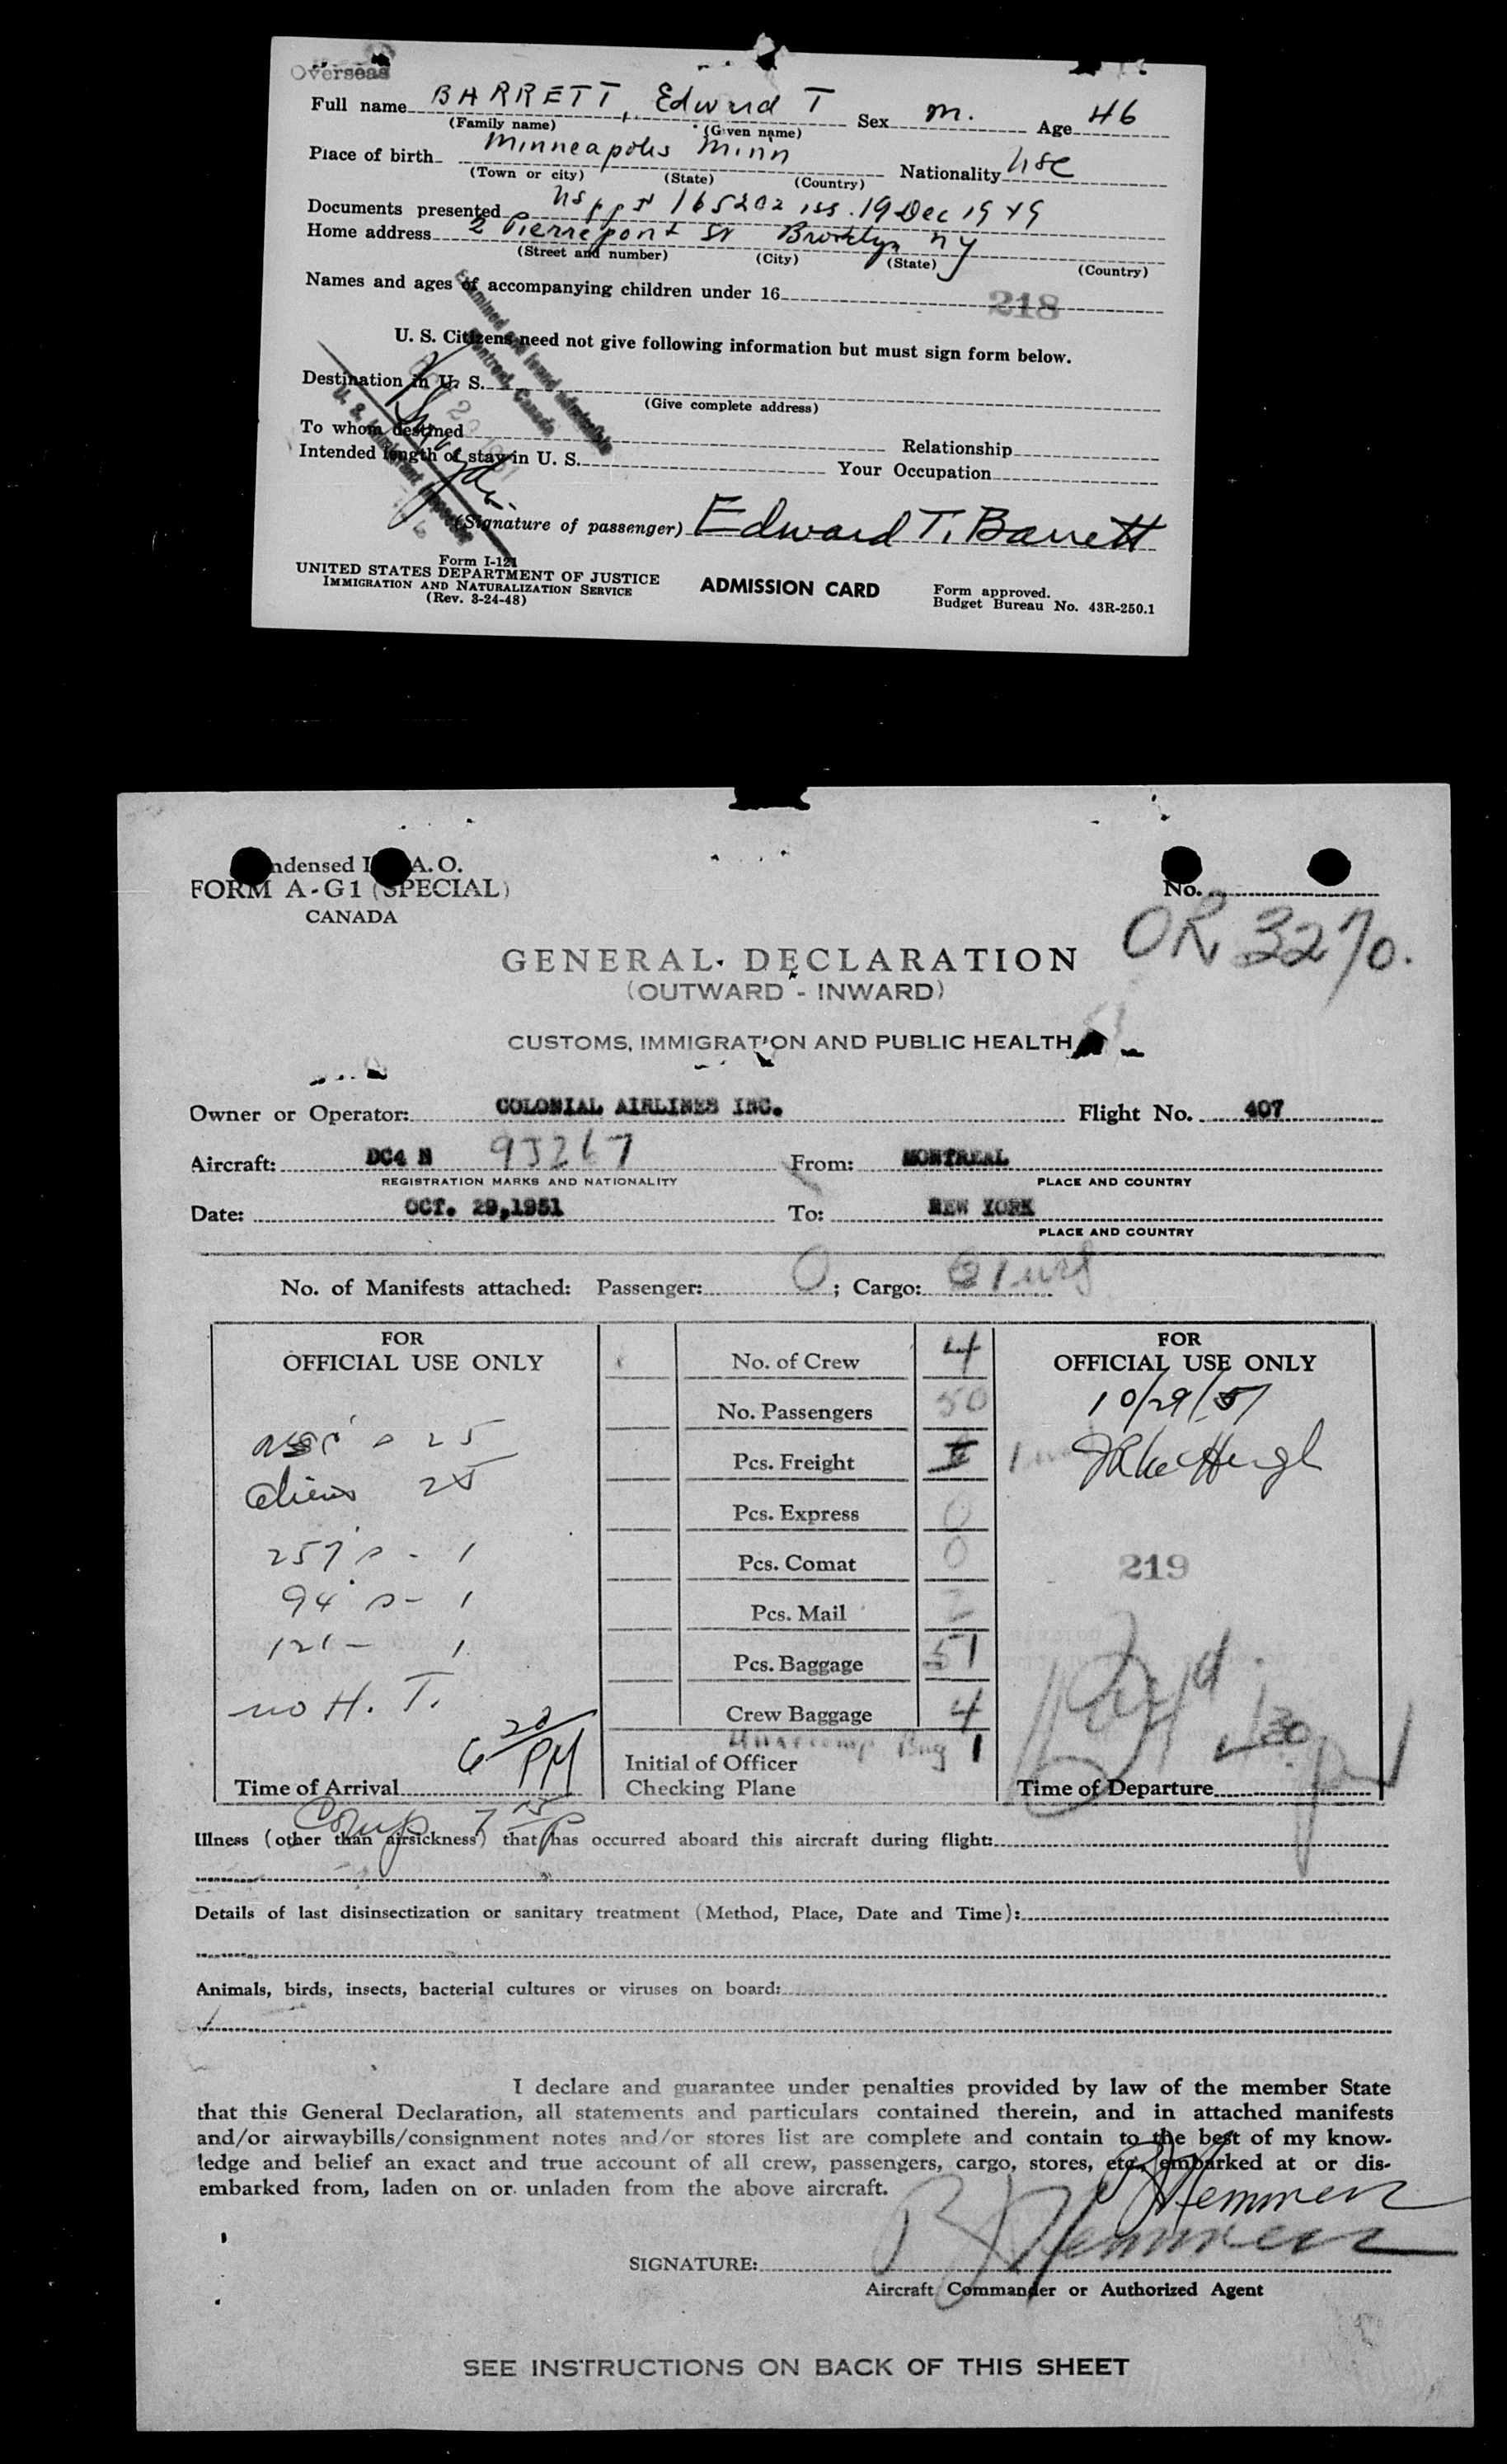 Overseas
Full name BARRETT, Edward T Sex m. Age 46
(Family name) (Given name)
Place of birth Minneapolis Minn Nationality USC
(Town or city) (State) (Country)
Documents presented US ppt 165202 iss. 19 Dec 1949
Home address 2 Pierrepont St Brooklyn NY
(Street and number) (City) (State) (Country)
Names and ages of accompanying children under 16
218
U. S. Citizens need not give following information but must sign form below.
Examined and found admissible
Montreal, Canada
U. S. Immigrant Inspector
Destination in U. S.
(Give complete address)
To whom destined Relationship
Intended length of stay in U. S. Your Occupation
(Signature of passenger) Edward T. Barrett
Form I-121
UNITED STATES DEPARTMENT OF JUSTICE
IMMIGRATION AND NATURALIZATION SERVICE
(Rev. 3-24-48)
ADMISSION CARD
Form approved.
Budget Bureau No. 43R-250.1
ndensed I A. O.
FORM A-G1 (SPECIAL)
CANADA
No.
OR 3270.
GENERAL DECLARATION
(OUTWARD - INWARD)
CUSTOMS, IMMIGRATION AND PUBLIC HEALTH
Owner or Operator: COLONIAL AIRLINES INC. Flight No. 407
Aircraft: DC4 N 93267 From: MONTREAL
REGISTRATION MARKS AND NATIONALITY PLACE AND COUNTRY
Date: OCT. 29,1951 To: NEW YORK
PLACE AND COUNTRY
No. of Manifests attached: Passenger: 0; Cargo:
FOR
OFFICIAL USE ONLY
25
Aliens 25
257's - 1
94's - 1
121 - 1
no H. T.
Time of Arrival 6 20 PM
Comp 7 15 p
No. of Crew 4
No. Passengers 50
Pcs. Freight
Pcs. Express 0
Pcs. Comat 0
Pcs. Mail 2
Pcs. Baggage 51
Crew Baggage 4
Unaccomp Bag 1
Initial of Officer
Checking Plane
FOR
OFFICIAL USE ONLY
10/29/51
219
Time of Departure
Illness (other than airsickness) that has occurred aboard this aircraft during flight:
Details of last disinsectization or sanitary treatment (Method, Place, Date and Time):
Animals, birds, insects, bacterial cultures or viruses on board:
I declare and guarantee under penalties provided by law of the member State
that this General Declaration, all statements and particulars contained therein, and in attached manifests
and/or airwaybills/consignment notes and/or stores list are complete and contain to the best of my know-
ledge and belief an exact and true account of all crew, passengers, cargo, stores, etc., embarked at or dis-
embarked from, laden on or unladen from the above aircraft.
SIGNATURE:
Aircraft Commander or Authorized Agent
SEE INSTRUCTIONS ON BACK OF THIS SHEET